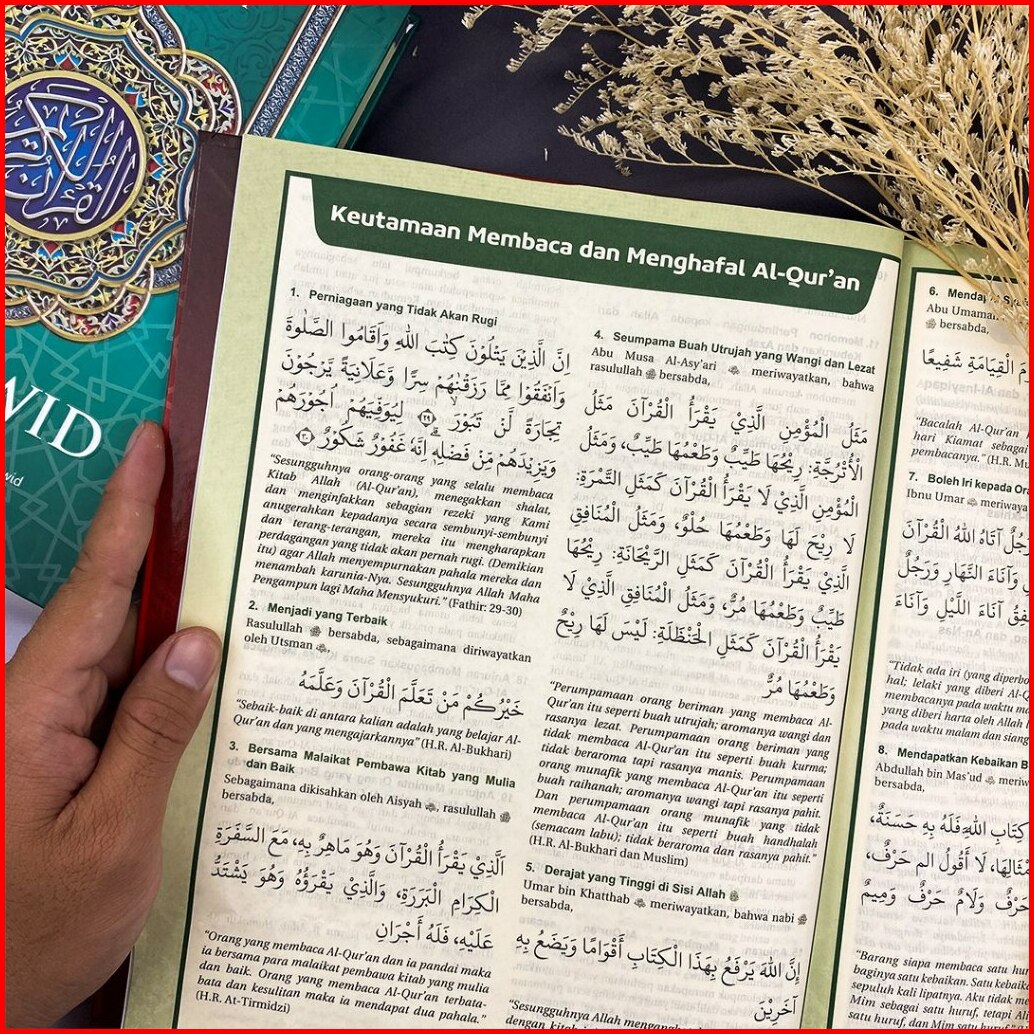 القرآن الكريم
WID
wid
Keutamaan Membaca dan Menghafal Al-Qur'an
1. Perniagaan yang Tidak Akan Rugi
اِنَّ الَّذِيْنَ يَتْلُوْنَ كِتٰبَ اللّٰهِ وَاَقَامُوا الصَّلٰوةَ
وَاَنْفَقُوْا مِمَّا رَزَقْنٰهُمْ سِرًّا وَّعَلَانِيَةً يَّرْجُوْنَ
تِجَارَةً لَّنْ تَبُوْرَۙ ٢٩ لِيُوَفِّيَهُمْ اُجُوْرَهُمْ
وَيَزِيْدَهُمْ مِّنْ فَضْلِهٖۗ اِنَّهٗ غَفُوْرٌ شَكُوْرٌ ٣٠
"Sesungguhnya orang-orang yang selalu membaca
Kitab Allah (Al-Qur'an), menegakkan shalat,
dan menginfakkan sebagian rezeki yang Kami
anugerahkan kepadanya secara sembunyi-sembunyi
dan terang-terangan, mereka itu mengharapkan
perdagangan yang tidak akan pernah rugi. (Demikian
itu) agar Allah menyempurnakan pahala mereka dan
menambah karunia-Nya. Sesungguhnya Allah Maha
Pengampun lagi Maha Mensyukuri." (Fathir: 29-30)
2. Menjadi yang Terbaik
Rasulullah ﷺ bersabda, sebagaimana diriwayatkan
oleh Utsman
خَيْرُكُمْ مَنْ تَعَلَّمَ الْقُرْآنَ وَعَلَّمَهُ
"Sebaik-baik di antara kalian adalah yang belajar Al-
Qur'an dan yang mengajarkannya" (H.R. Al-Bukhari)
3. Bersama Malaikat Pembawa Kitab yang Mulia
dan Baik
Sebagaimana dikisahkan oleh Aisyah, rasulullah ﷺ
bersabda,
الَّذِي يَقْرَأُ الْقُرْآنَ وَهُوَ مَاهِرٌ بِهِ، مَعَ السَّفَرَةِ
الْكِرَامِ الْبَرَرَةِ، وَالَّذِي يَقْرَؤُهُ وَهُوَ يَشْتَدُّ
عَلَيْهِ، فَلَهُ أَجْرَانِ
"Orang yang membaca Al-Qur'an dan ia pandai maka
ia bersama para malaikat pembawa kitab yang mulia
dan baik. Orang yang membaca Al-Qur'an terbata-
bata dan kesulitan maka ia mendapat dua pahala."
(H.R. At-Tirmidzi)
4. Seumpama Buah Utrujah yang Wangi dan Lezat
Abu Musa Al-Asy'ari meriwayatkan, bahwa
rasulullah ﷺ bersabda,
مَثَلُ الْمُؤْمِنِ الَّذِيْ يَقْرَأُ الْقُرْآنَ مَثَلُ
الْأُتْرُجَّةِ: رِيْحُهَا طَيِّبٌ وَطَعْمُهَا طَيِّبٌ، وَمَثَلُ
الْمُؤْمِنِ الَّذِيْ لَا يَقْرَأُ الْقُرْآنَ كَمَثَلِ التَّمْرَةِ:
لَا رِيْحَ لَهَا وَطَعْمُهَا حُلْوٌ، وَمَثَلُ الْمُنَافِقِ
الَّذِيْ يَقْرَأُ الْقُرْآنَ كَمَثَلِ الرَّيْحَانَةِ: رِيْحُهَا
طَيِّبٌ وَطَعْمُهَا مُرٌّ، وَمَثَلُ الْمُنَافِقِ الَّذِيْ لَا
يَقْرَأُ الْقُرْآنَ كَمَثَلِ الْحَنْظَلَةِ: لَيْسَ لَهَا رِيْحٌ
وَطَعْمُهَا مُرٌّ
"Perumpamaan orang beriman yang membaca Al-
Qur'an itu seperti buah utrujah; aromanya wangi dan
rasanya lezat. Perumpamaan orang beriman yang
tidak membaca Al-Qur'an itu seperti buah kurma;
tidak beraroma tapi rasanya manis. Perumpamaan
orang munafik yang membaca Al-Qur'an itu seperti
buah raihanah; aromanya wangi tapi rasanya pahit.
Dan perumpamaan orang munafik yang tidak
membaca Al-Qur'an itu seperti buah handhalah
(semacam labu); tidak beraroma dan rasanya pahit."
(H.R. Al-Bukhari dan Muslim)
5. Derajat yang Tinggi di Sisi Allah
Umar bin Khatthab meriwayatkan, bahwa nabi ﷺ
bersabda,
إِنَّ اللهَ يَرْفَعُ بِهَذَا الْكِتَابِ أَقْوَامًا وَيَضَعُ بِهِ
آخَرِيْنَ
"Sesungguhnya Allah
dengan kitab
6.
Abu Umama
ﷺ bersabda,
مَ الْقِيَامَةِ شَفِيعًا
"Bacalah Al-Qur'an
hari Kiamat sebagai
pembacanya." (H.R. Mu
7. Boleh Iri kepada Or
Ibnu Umar meriwaya
جُلٌ آتَاهُ اللهُ الْقُرْآنَ
وَآنَاءَ النَّهَارِ وَرَجُلٌ
آنَاءَ اللَّيْلِ وَآنَاءَ
"Tidak ada iri (yang diperbo
hal; lelaki yang diberi Al-Q
membacanya pada waktu ma
yang diberi harta oleh Allah
pada waktu malam dan siang
8. Mendapatkan Kebaikan B
Abdullah bin Mas'ud meriw
bersabda,
كِتَابِ اللهِ فَلَهُ بِهِ حَسَنَةٌ،
لَا أَقُولُ الم حَرْفٌ،
حَرْفٌ وَلَامٌ حَرْفٌ وَمِيمٌ
"Barang siapa membaca satu hur
baginya satu kebaikan. Satu kebaik
sepuluh kali lipatnya. Aku tidak me
Mim sebagai satu huruf, tetapi Al
satu huruf, dan Mim satu huruf."